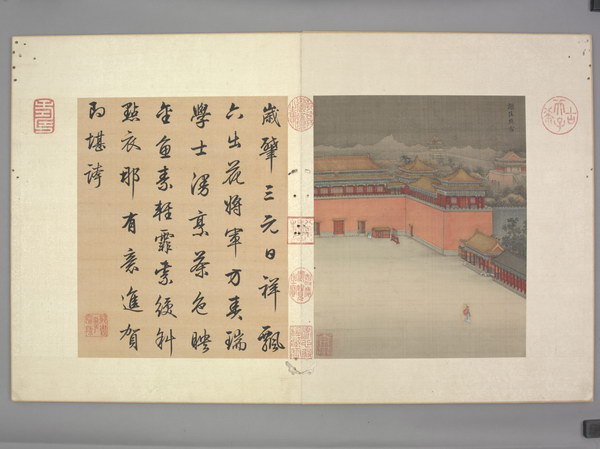 歲肇三元日祥飄
六出花將軍方奏瑞
學士漫烹茶色映
金魚素輕霏紫綬斜
點衣那有意進賀
即堪誇